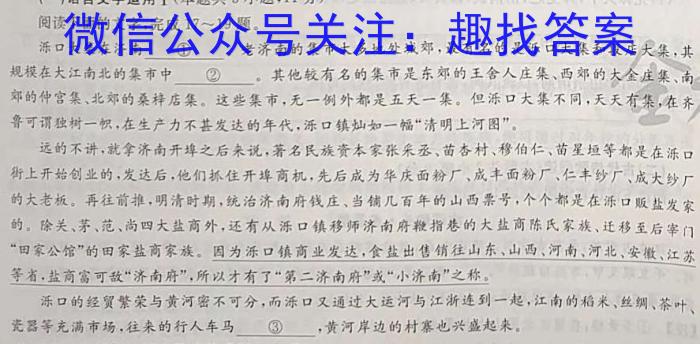 微信公众号关注：趣找答案
阅读
泺口
规模在大江南北的集市中 ② 。其他较有名的集市是东郊的王舍人庄集、西郊的大金庄集、南
郊的仲宫集、北郊的桑梓店集。这些集市,无一例外都是五天一集。但泺口大集不同,天天有集,在齐
鲁可谓独树一帜,在生产力不甚发达的年代,泺口镇灿如一幅“清明上河图”。
远的不讲,就拿济南开埠之后来说,著名民族资本家张采丞、苗杏村、穆伯仁、苗星垣等都是在泺口
街上开始创业的,发达后,他们抓住开埠商机,先后成为华庆面粉厂、成丰面粉厂、仁丰纱厂、成大纱厂
的大老板。再往前推,明清时期,统治济南府钱庄、当铺几百年的山西票号,个个都是在泺口贩盐发家
的。除关、茅、范、尚四大盐商外,还有从泺口镇移师济南府鞭指巷的大盐商陈氏家族、迁移至后宰门
“田家公馆”的田家盐商家族。因为泺口镇商业发达,食盐出售销往山东、山西、河南、河北、安徽、江苏
等省,盐商富可敌“济南府”,所以才有了“第二济南府”或“小济南”之称。
泺口的经贸繁荣与黄河密不可分,而泺口又通过大运河与江浙连到一起,江南的稻米、丝绸、茶叶、
瓷器等充满市场,往来的行人车马 ③ ,黄河岸边的村寨也兴盛起来。